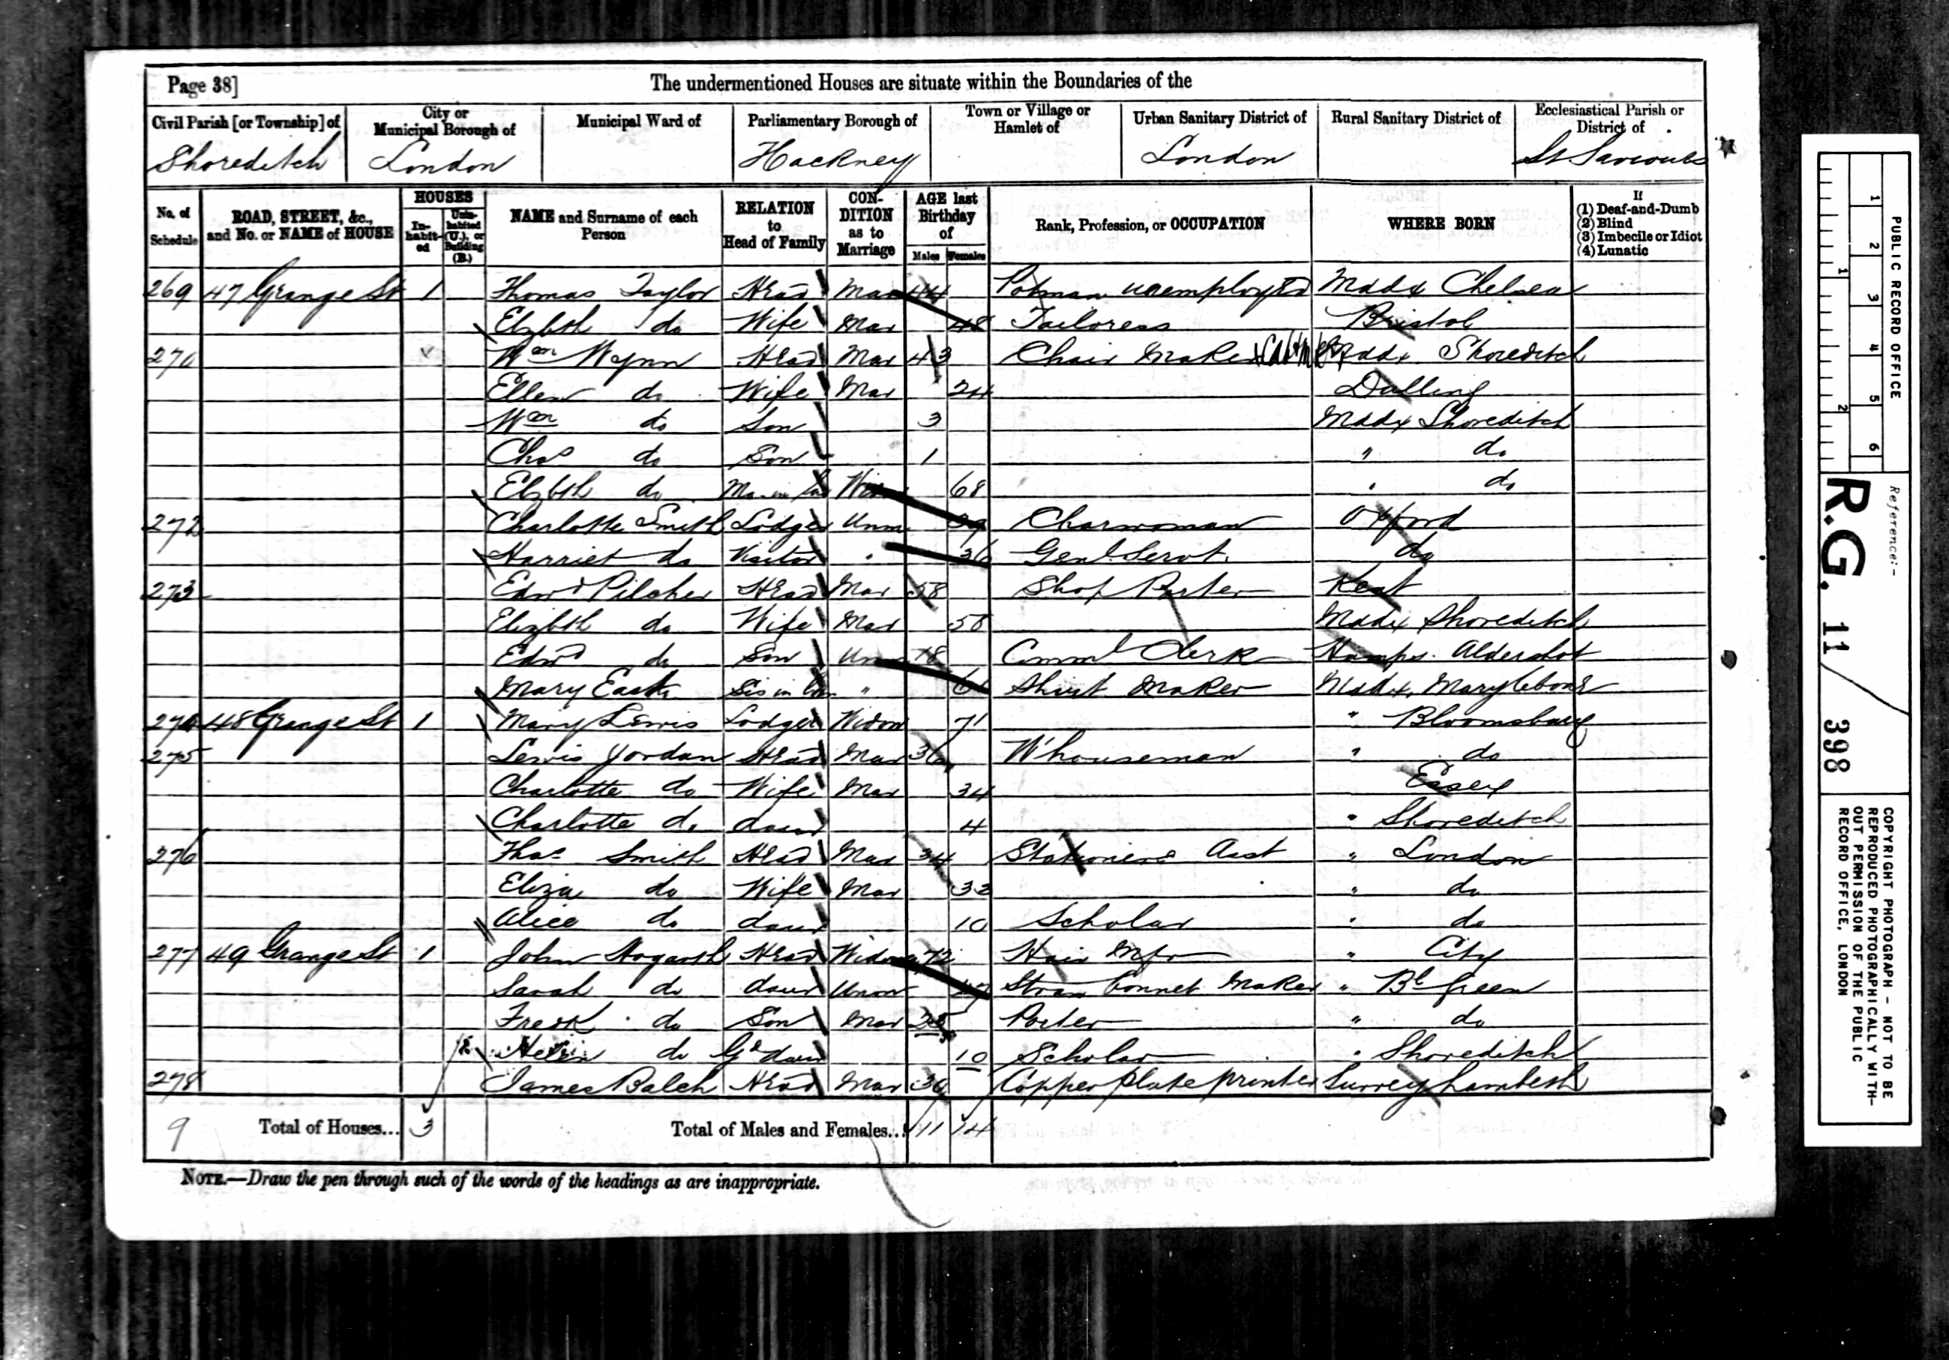 Page 38]
The undermentioned Houses are situate within the Boundaries of the
Civil Parish [or Township] of
Shoreditch
City or Municipal Borough of
London
Municipal Ward of
Parliamentary Borough of
Hackney
Town or Village or Hamlet of
Urban Sanitary District of
London
Rural Sanitary District of
Ecclesiastical Parish or District of
St Saviours
No. of Schedule
ROAD, STREET, &c., and No. or NAME of HOUSE
HOUSES
In-habit-ed
Unin-habited (U.), or Building (B.)
NAME and Surname of each Person
RELATION to Head of Family
CON-DITION as to Marriage
AGE last Birthday of
Males
Females
Rank, Profession, or OCCUPATION
WHERE BORN
If
(1) Deaf-and-Dumb
(2) Blind
(3) Imbecile or Idiot
(4) Lunatic
269 47 Grange St 1 Thomas Taylor Head Mar 44 Potman unemployed Maddx Chelsea
Elzbth do Wife Mar 48 Tailoress Bristol
270 Wm Wynn Head Mar 43 Chair Maker Maddx Shoreditch
Ellen do Wife Mar 24 Dalling
Wm do Son 3 Maddx Shoreditch
Chas do Son 1 " do
Elzbth do 68 " do
272 Charlotte Smith Lodger Unm 39 Charwoman Oxford
Harriet do Visitor " 36 Genl Servt do
273 Edwd Pilcher Head Mar 58 Shop Porter Kent
Elizbth do Wife Mar 58 Maddx Shoreditch
Edwd do Son Unm 18 Comml Clerk Hamps. Aldershot
Mary East Sis in law " Shirt Maker Maddx, Marylebone
274 48 Grange St 1 Mary Lewis Lodger Widow 71 " Bloomsbury
275 Lewis Jordan Head Mar 36 Whouseman " do
Charlotte do Wife Mar 34 Essex
Charlotte do daur 4 " Shoreditch
276 Thos Smith Head Mar 34 Stationers Asst " London
Eliza do Wife Mar 32 " do
Alice do daur 10 Scholar " do
277 49 Grange St 1 John Hogarth Head Widowr 72 Hair Mfr " City
Sarah do daur Unm Straw bonnet Maker " Bl Green
Fredk do Son Mar Porter " do
Helen do Gd daur 10 Scholar " Shoreditch
278 James Balch Head Mar 39 Copper plate printer Surrey Lambeth
9 Total of Houses... 3 Total of Males and Females... 11 14
NOTE.—Draw the pen through such of the words of the headings as are inappropriate.
1 2 3 4 5 6
1 2
PUBLIC RECORD OFFICE
Reference:-
R.G. 11 / 398
COPYRIGHT PHOTOGRAPH - NOT TO BE
REPRODUCED PHOTOGRAPHICALLY WITH-
OUT PERMISSION OF THE PUBLIC
RECORD OFFICE, LONDON